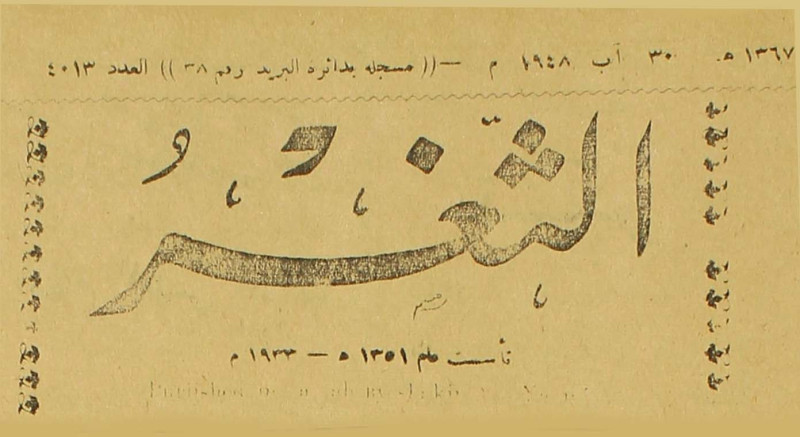 ١٣٦٧ ه. ٣٠ آب ١٩٤٨ م —(( مسجله بدائره البريد رقم ٣٨ )) العدد ٤٠١٣
الثَّغْرُ
تأست عام ١٣٥١ ه — ١٩٣٣ م